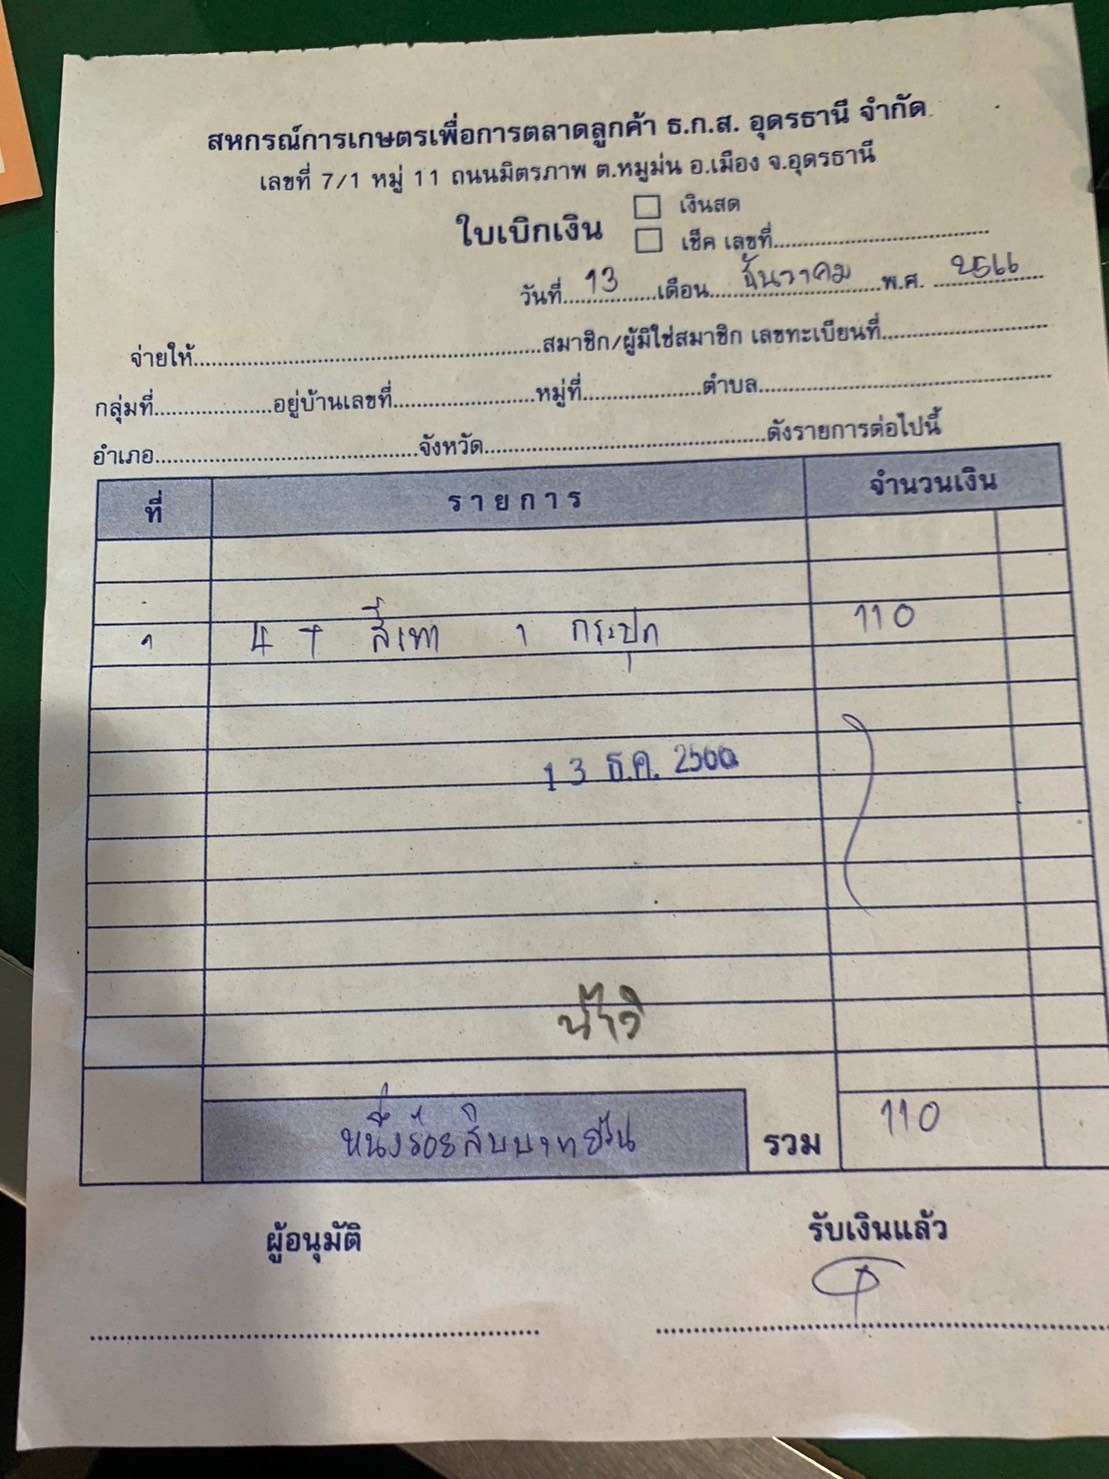 สหกรณ์การเกษตรเพื่อการตลาดลูกค้า ธ.ก.ส. อุดรธานี จำกัด
เลขที่ 7/1 หมู่ 11 ถนนมิตรภาพ ต.หมูม่น อ.เมือง จ.อุดรธานี
ใบเบิกเงิน เงินสด
เช็ค เลขที่
วันที่ 13 เดือน ธันวาคม พ.ศ. ๒๕๖๖
จ่ายให้ สมาชิก/ผู้มิใช่สมาชิก เลขทะเบียนที่
กลุ่มที่ อยู่บ้านเลขที่ หมู่ที่ ตำบล
อำเภอ จังหวัด ดังรายการต่อไปนี้
ที่ รายการ จำนวนเงิน
๑ 4 T สีเทา 1 กระปุก 110
13 ธ.ค.
หนึ่งร้อยสิบบาทถ้วน รวม 110
ผู้อนุมัติ รับเงินแล้ว